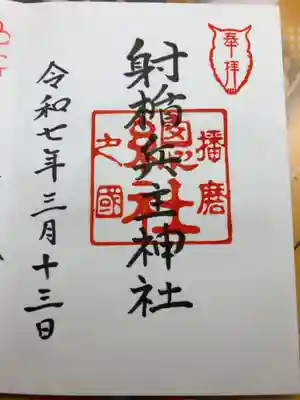 奉拝
播磨
射楯兵主神社
之國
令和七年三月十三日